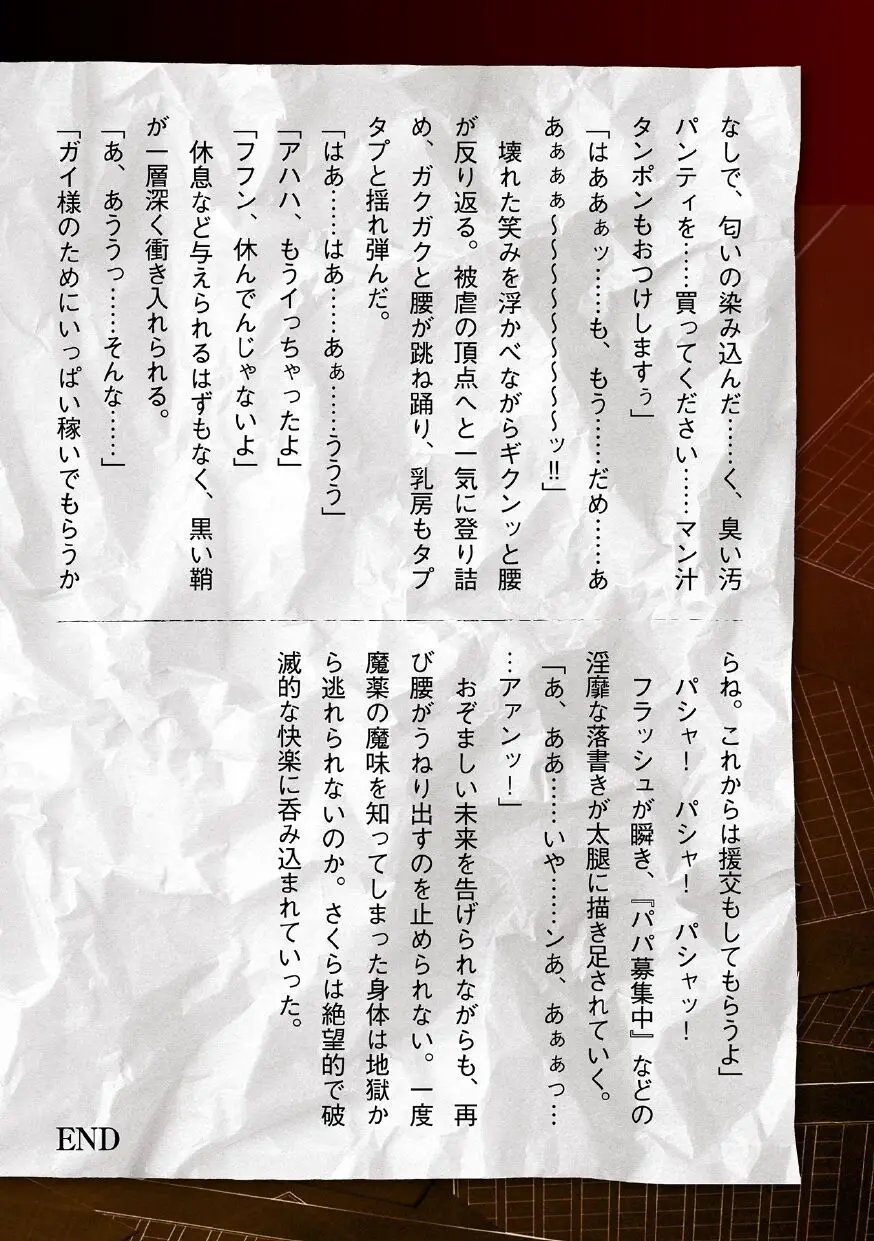 なしで、匂いの染み込んだ……く、臭い汚
パンティを……買ってください……マン汁
タンポンもおつけしますぅ」
「はああぁッ……も、もう……だめ……あ
あぁぁぁ～～～～～～～～～～ッ!!」
　壊れた笑みを浮かべながらギクンッと腰
が反り返る。被虐の頂点へと一気に登り詰
め、ガクガクと腰が跳ね踊り、乳房もタプ
タプと揺れ弾んだ。
「はあ……はあ……あぁ……ううう」
「アハハ、もうイっちゃったよ」
「フフン、休んでんじゃないよ」
　休息など与えられるはずもなく、黒い鞘
が一層深く衝き入れられる。
「あ、あううっ……そんな……」
「ガイ様のためにいっぱい稼いでもらうか
らね。これからは援交もしてもらうよ」
　パシャ！　パシャ！　パシャッ！
　フラッシュが瞬き、『パパ募集中』などの
淫靡な落書きが太腿に描き足されていく。
「あ、ああ……いや……ンあ、あぁぁっ…
…アァンッ！」
　おぞましい未来を告げられながらも、再
び腰がうねり出すのを止められない。一度
魔薬の魔味を知ってしまった身体は地獄か
ら逃れられないのか。さくらは絶望的で破
滅的な快楽に呑み込まれていった。
END